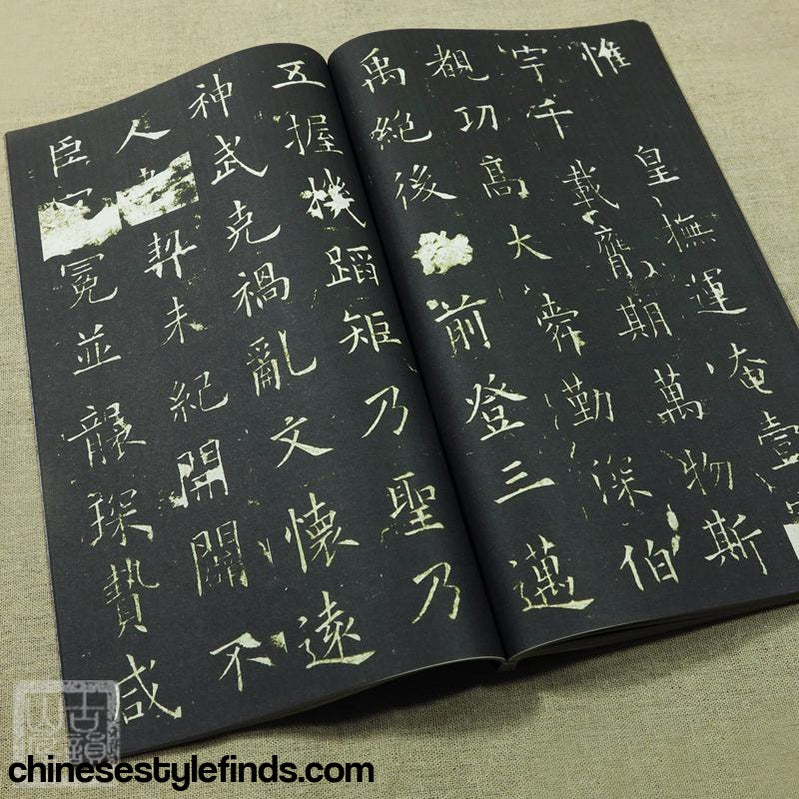 惟皇撫運奄壹
宇千載膺期萬物斯
覩功高大舜勤深伯
禹絶後前登三邁
五握機蹈矩乃聖乃
神武克禍亂文懷遠
人契未紀開闢不
臣冕並襲琛贄咸
chinesestylefinds.com